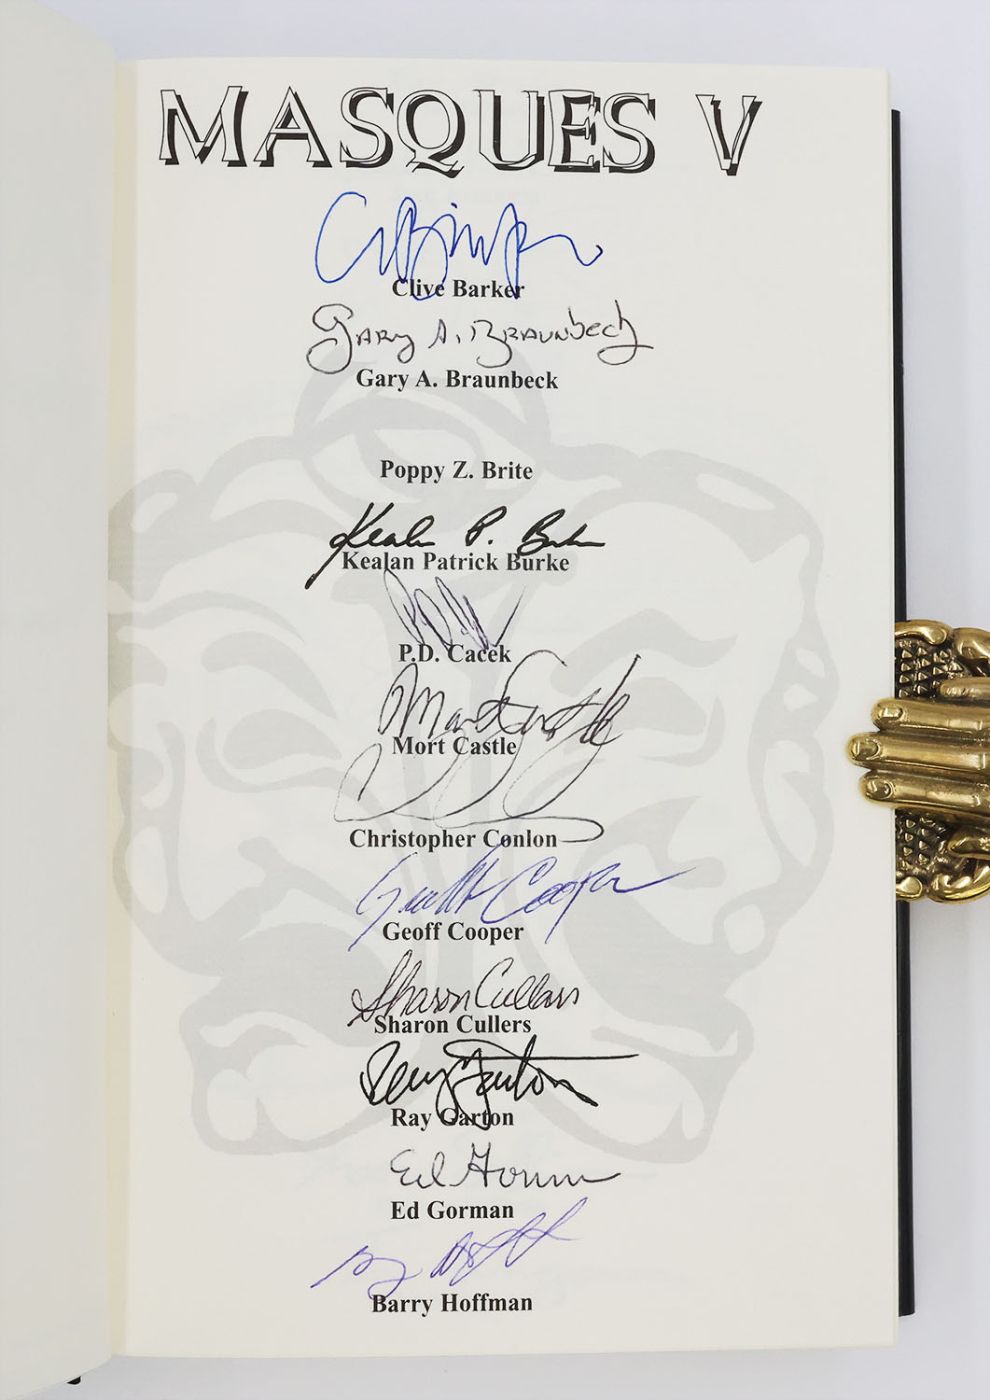 MASQUES V
Clive Barker
Gary A. Braunbeck
Gary A. Braunbeck
Poppy Z. Brite
Kealan P. Burke
Kealan Patrick Burke
P.D. Cacek
Mort Castle
Mort Castle
Christopher Conlon
Geoff Cooper
Geoff Cooper
Sharon Cullars
Sharon Cullers
Ray Garton
Ray Garton
Ed Gorman
Ed Gorman
Barry Hoffman